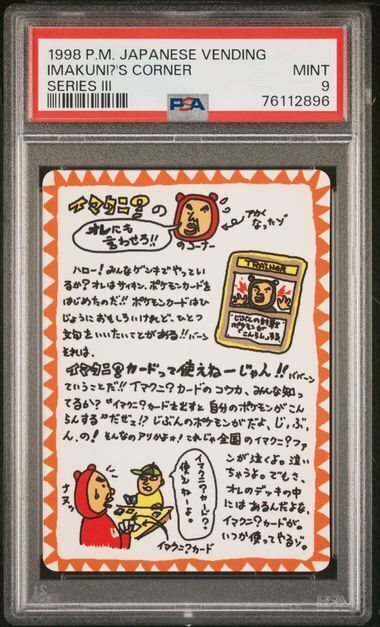 1998 P.M. JAPANESE VENDING
IMAKUNI?'S CORNER MINT
SERIES III 9
PSA 76112896
イマクニ?の
オレにも
言わせろ!!
のコーナー
アカく
なったゾ
ハロー!みんなゲンキでやってい
るか?オレはサイキン、ポモンカードを
はじめたのだ!!ポケモンカードはひ
じょうにおもしろいけれど、ひとつ
文句をいいたいことがある!!バーン
それは、
TRAINER
じぶんの
ポケモンが
こんらんする
イマクニ?カードって使えねーじゃん!!ババーン
ていうことだ!!イマクニ?カードのコウカ、みんな知っ
てるか?"イマクニ?カードを出すと自分のポケモンがこんら
んする"だぜェ!?じぶんのポケモンがだよ、じ、ぶ、
ん、の!そんなのアリかよォ!これじゃ全国のイマクニ?ファ
ンが泣くよ。泣い
ちゃうよ。でもさ、
オレのデッキの中
にはあるんだよな、
イマクニ?カードが。
いつか使ってやるゾ。
ナヌッ
イマクニ?カード?
使えねーよ。
イマクニ?カード